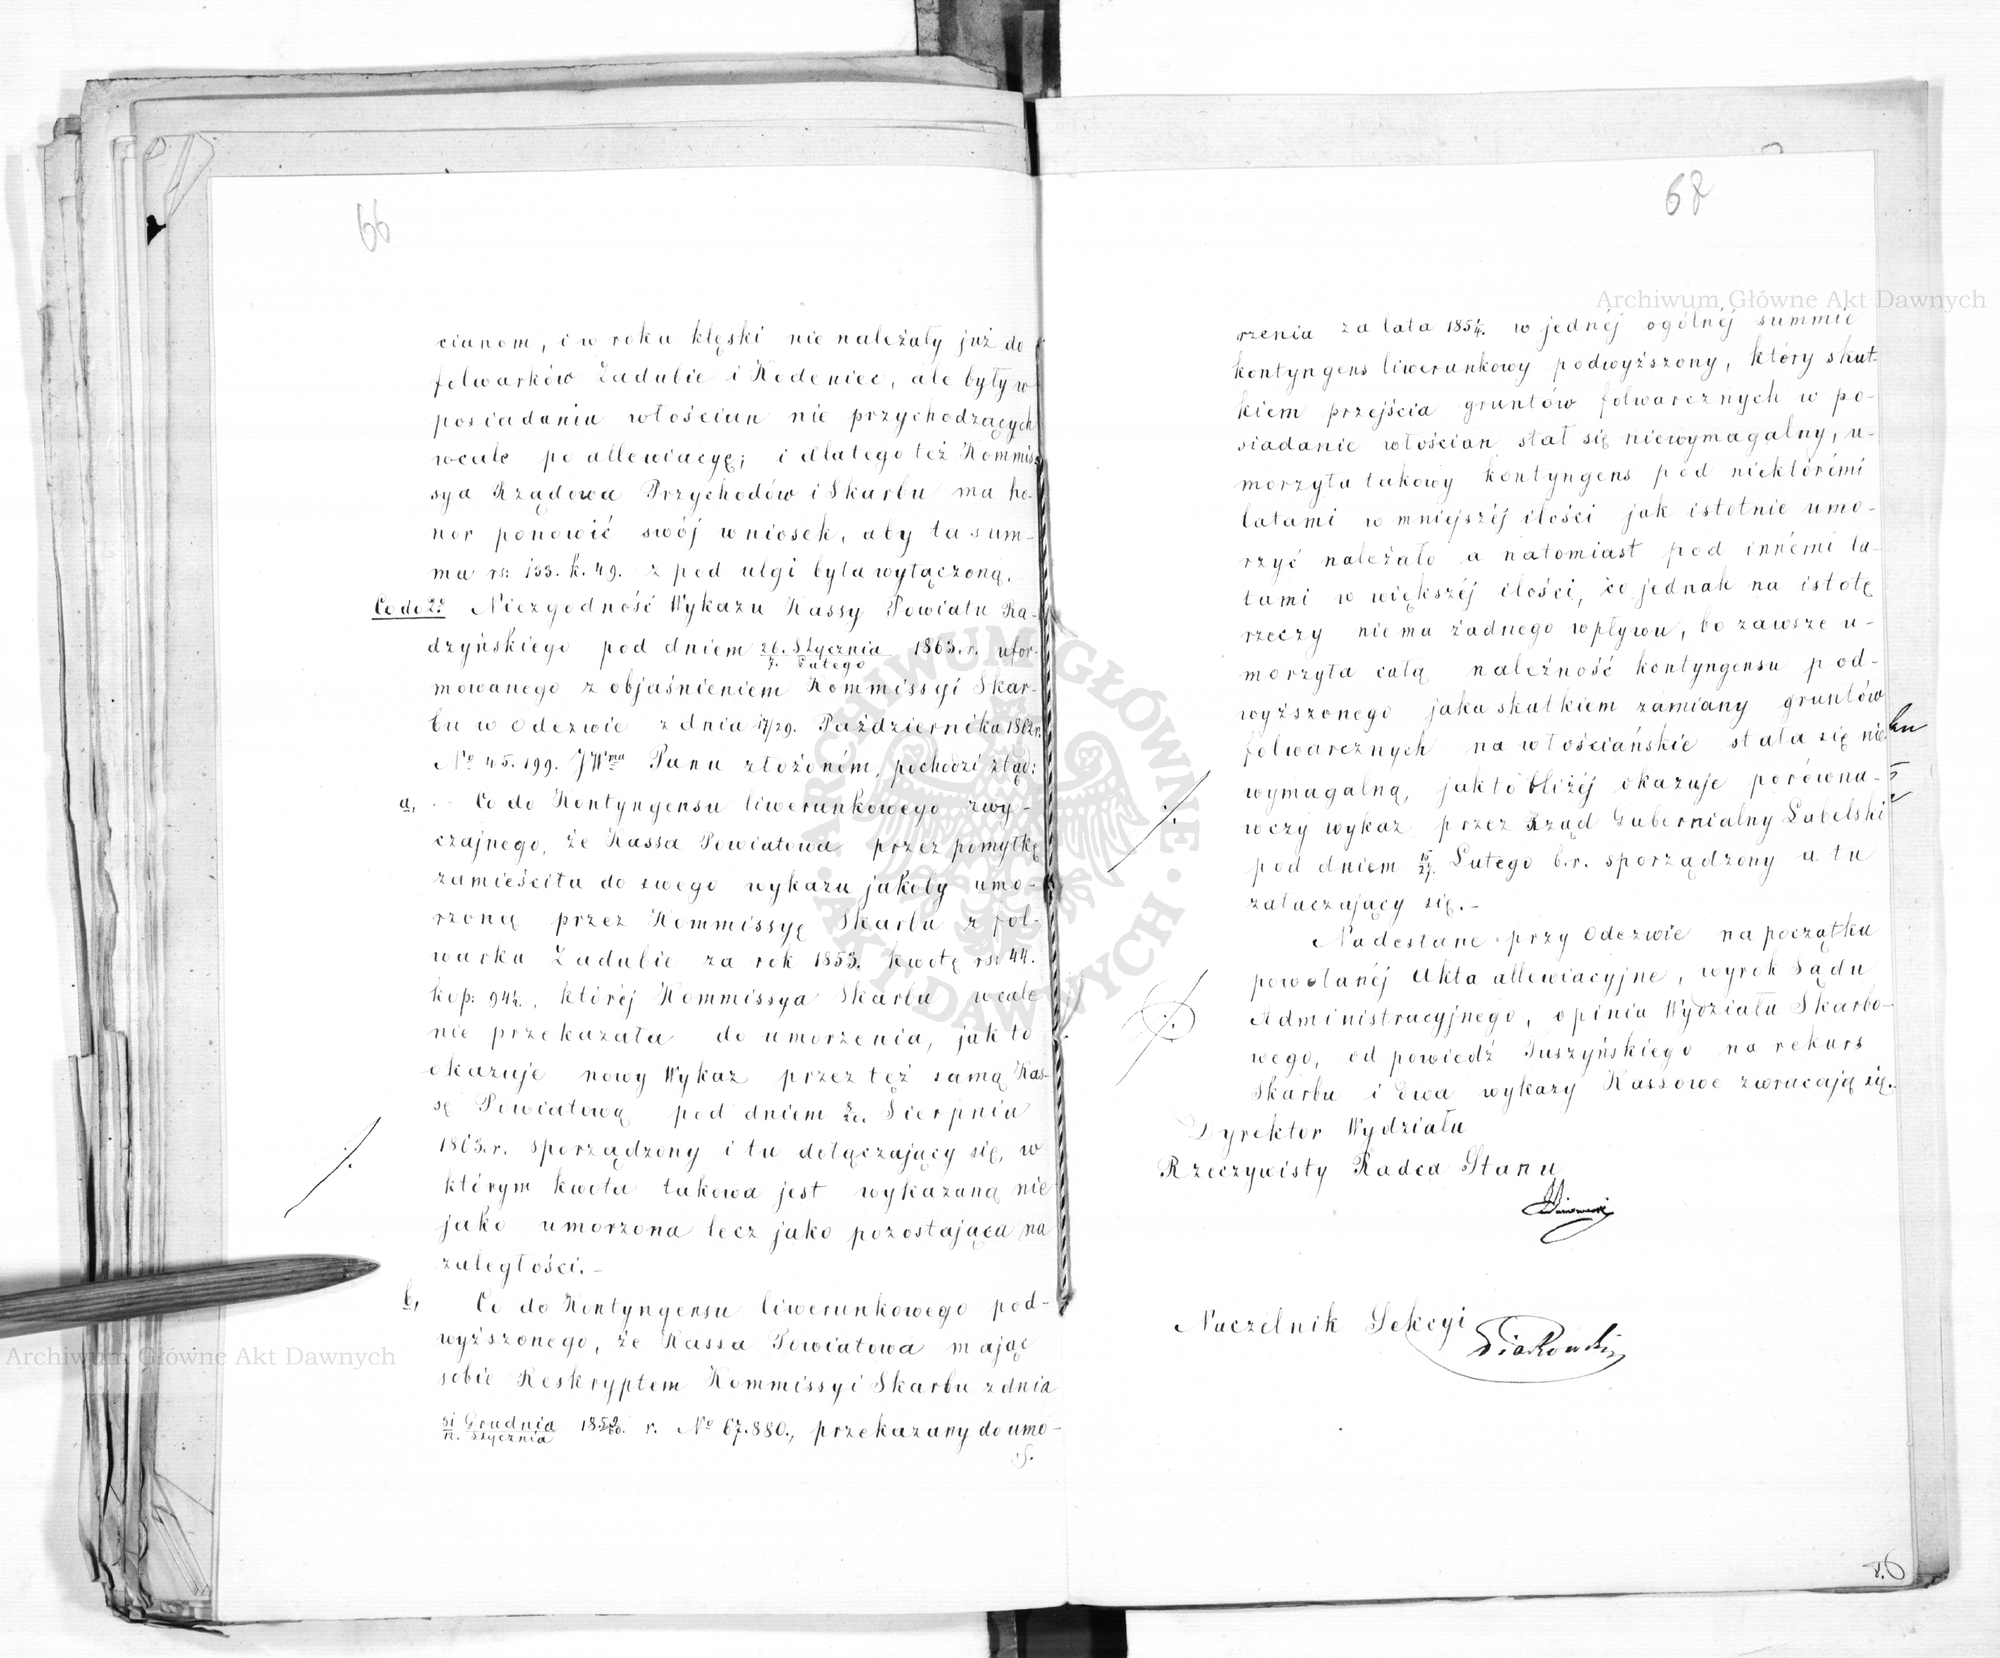 66
cianom, i w roku klęski nie należały już do
folwarków Żadubie i Kodeniec, ale były w
posiadaniu włościan nie przychodzących
wcale po allewiacyę; i dlatego też Kommis-
sya Rządowa Przychodów i Skarbu ma ho-
nor ponowić swój wniosek, aby ta sum-
ma rs: 133. k. 49. z pod ulgi była wyłączoną.
Co do 2º Niezgodność Wykazu Kassy Powiatu Ra-
dzyńskiego pod dniem 26. Stycznia / 7. Lutego 1863. r. ufor-
mowanego z objaśnieniem Kommissyi Skar-
bu w odezwie z dnia 17/29. Października 1862 r.
Nº 45.199. JWmu Panu złożoném, pochodzi ztąd:
a, Co do Kontyngensu liwerunkowego zwy-
czajnego, że Kassa Powiatowa przez pomyłkę
zamieściła do swego wykazu jakoby umo-
rzoną przez Kommissyę Skarbu z fol-
warku Żadubie za rok 1853. kwotę rs: 44.
kop: 94½, któréj Kommissya Skarbu wcale
nie przekazała do umorzenia, jak to
okazuje nowy Wykaz przez też samą Kas-
sę Powiatową pod dniem 8/20. Sierpnia
1863. r. sporządzony i tu dołączający się, w
którym kwota takowa jest wykazaną nie
jako umorzona lecz jako pozostająca na
zaległości. –
b, Co do Kontyngensu liwerunkowego pod-
wyższonego, że Kassa Powiatowa mając
sobie Reskryptem Kommissyi Skarbu z dnia
31 Grudnia / 12. Stycznia 1859/60. r. Nº 67.880., przekazany do umo-
68
Archiwum Główne Akt Dawnych
rzenia za lata 185¼. w jednéj ogólnéj summie
kontyngens liwerunkowy podwyższony, który skut-
kiem przejścia gruntów folwarcznych w po-
siadanie włościan stał się niewymagalny, u-
morzyła takowy kontyngens pod niektóremi
latami w mniejszéj ilości jak istotnie umo-
rzyć należało a natomiast pod innémi la-
tami w większéj ilości, co jednak na istotę
rzeczy nie ma żadnego wpływu, bo zawsze u-
morzyła całą należność kontyngensu pod-
wyższonego jaka skutkiem zamiany gruntów
folwarcznych na włościańskie stała się nie-
wymagalną, jak to bliżéj okazuje porówna-
wczy wykaz przez Rząd Gubernialny Lubelski
pod dniem 15/27. Lutego b. r. sporządzony a tu
załączający się. –
Nadesłane przy odezwie na początku
powołanéj Akta allewiacyjne, wyrok Sądu
Administracyjnego, opinia Wydziału Skarbo-
wego, odpowiedź Tuszyńskiego na rekurs
Skarbu i dwa wykazy Kassowe zwracają się.
Dyrektor Wydziału
Rzeczywisty Radca Stanu
Naczelnik Sekcyi
Archiwum Główne Akt Dawnych
ARCHIWUM GŁÓWNE
AKT DAWNYCH